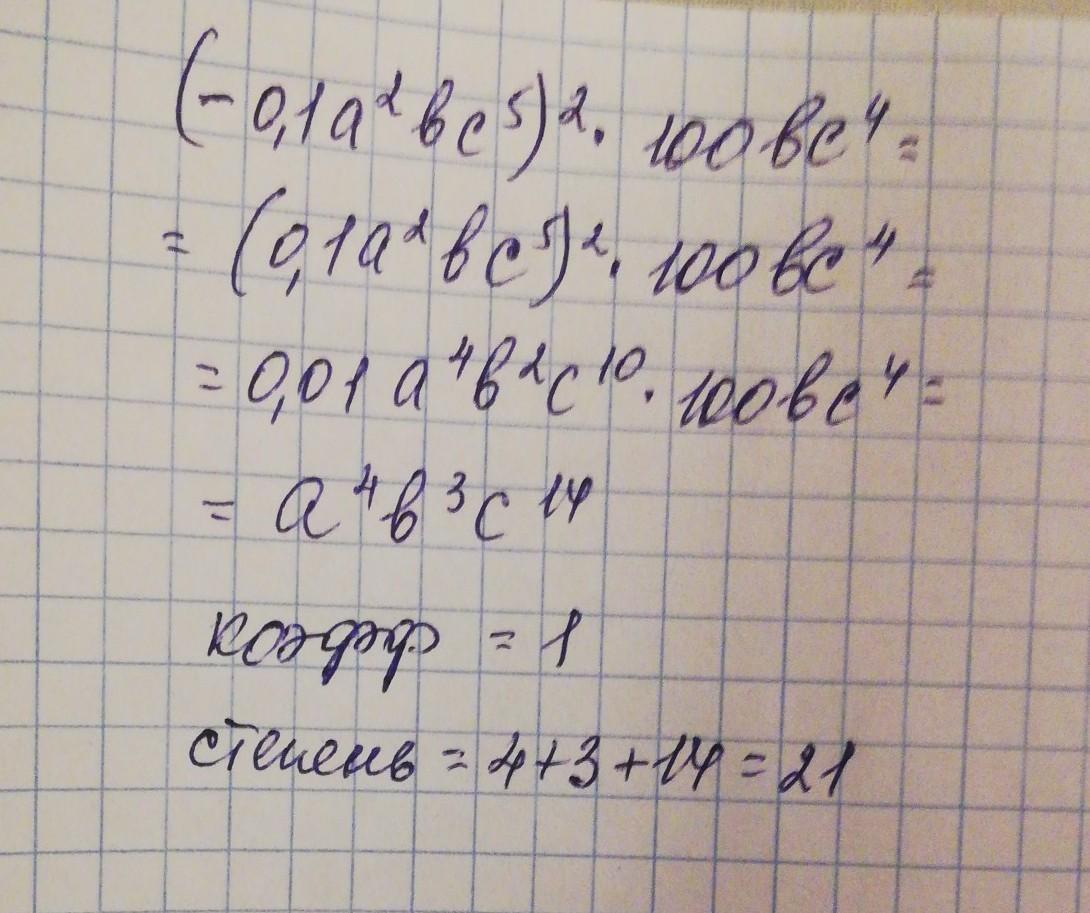 (-0,1a²bc⁵)². 100bc⁴=
= (0,1a²bc⁵)². 100bc⁴=
= 0,01a⁴b²c¹⁰. 100bc⁴=
= a⁴b³c¹⁴
коэфф = 1
степень = 4+3+14=21